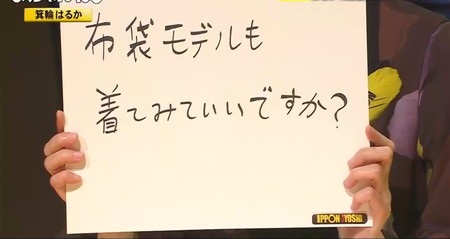 箕輪はるか
布袋モデルも
着てみていいですか?
IPPON